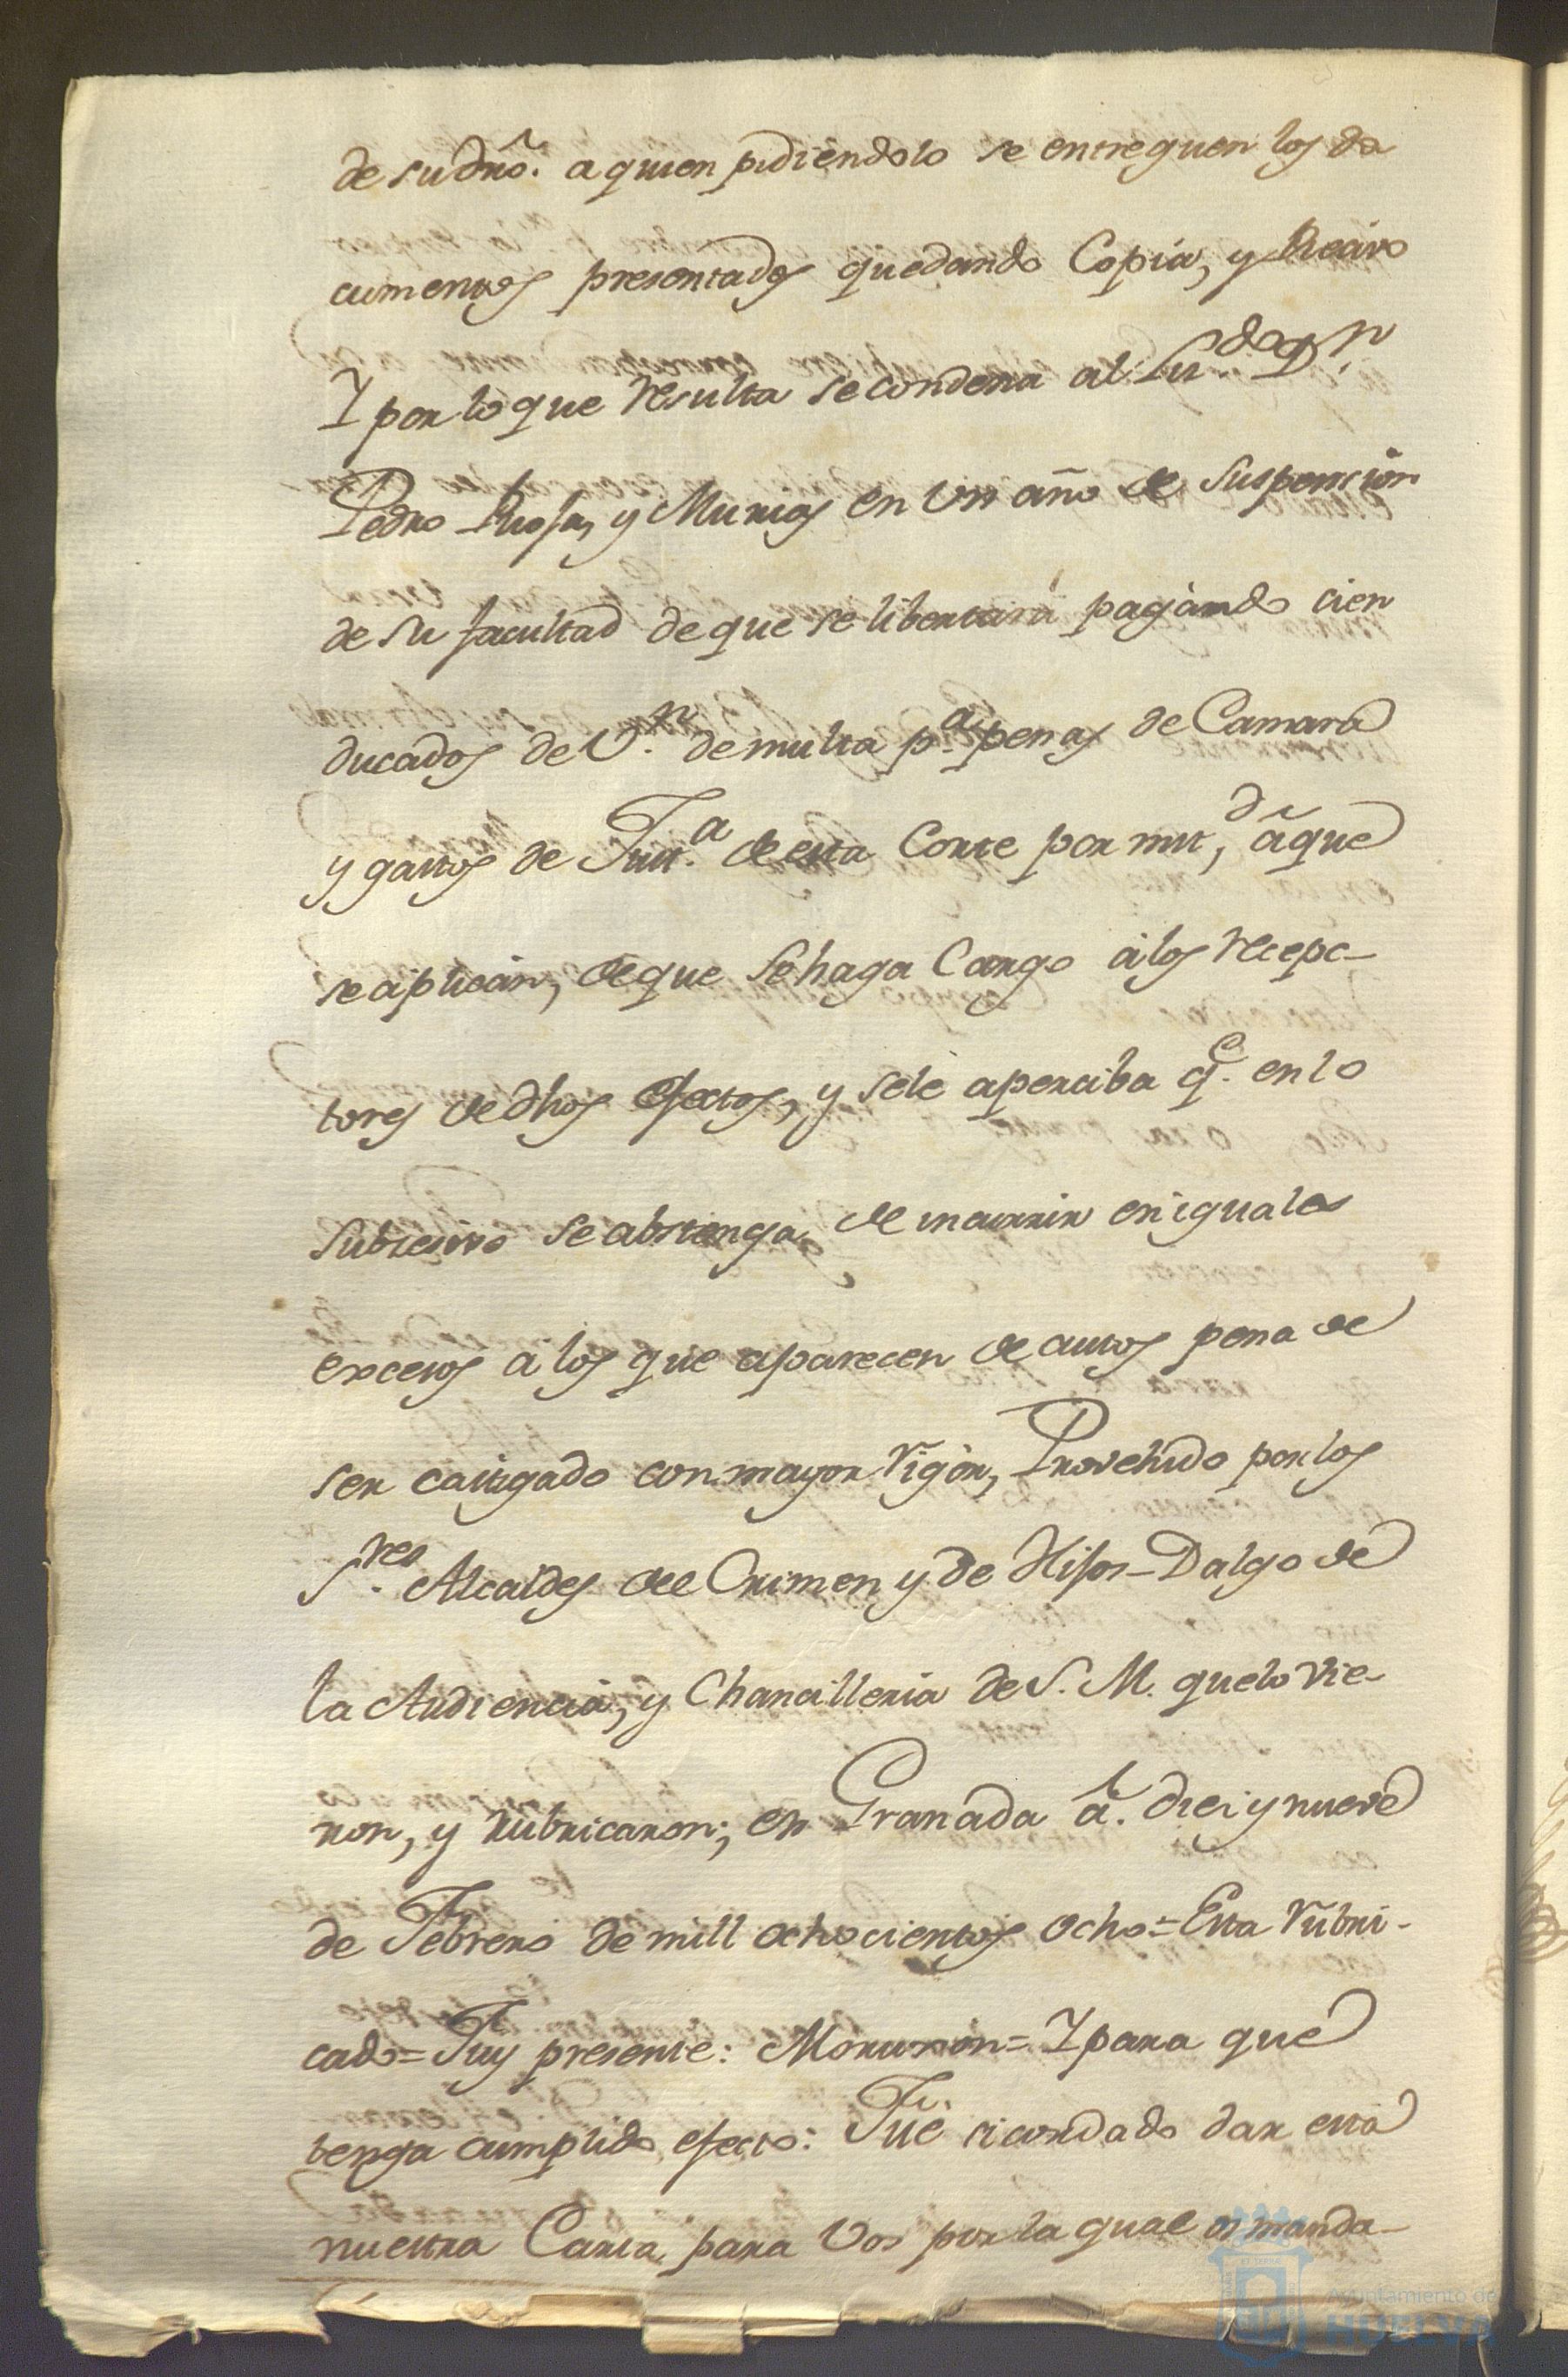 de su dro͂. a quien pidiendolo se entreguen los do
cumentos presentados quedando Copia, y Recivo
Y por lo que resulta se condena al Liz.do D.n
Pedro Rosa, y Munios en Un año de Suspencion
de su facultad de que se libertará pagando cien
ducados de V.n de multa p.a penas de Camara
y gastos de Just.a de esta Corte por mit,d â que
se aplican, de que Se haga Cargo à los recep-
tores de dhos efectos, y sele aperciba q.e en lo
Subcesivo se abstenga de incurrir en iguales
excesos a los que aparecen de autos pena de
ser castigado con mayor rigòr, Provehido por los
S.res Alcaldes del Crimen y de Hijos-Dalgo de
la Audiencia, y Chancilleria de S. M. que lo vie-
ron, y rubricaron; en Granada â. diez y nueve
de Febrero de mill ochocientos ocho = Esta rubri-
cado = Fuy presente: = Y para que
tenga cumplido efecto: Fuè acordado dar esta
nuestra Carta para Vos por la qual os manda-
Ayuntamiento de
HUELVA